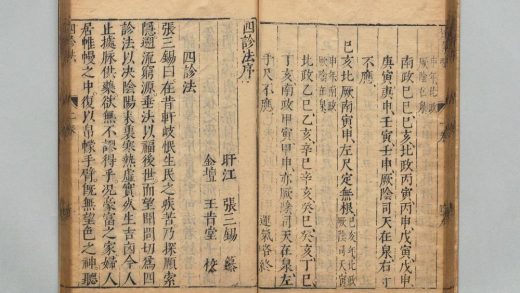 南政己巳己亥北政丙寅丙申戊寅戊申
庚寅庚申壬寅壬申厥陰司天在泉右寸
不應
巳亥北厥南寅申左尺定無根
北政乙巳乙亥辛巳辛亥癸巳癸亥丁巳
丁亥南政甲寅甲申亦厥陰司天在泉左
手尺不應 運氣畧終
四診法序
盱江 張三錫 纂
金壇 王肯堂 校
四診法
張三錫曰在昔軒岐恨生民之疾苦乃探頤索
隱遡流窮源垂法以福後世而望聞問切為四
診法以決陰陽表裏寒熱虛實死生吉凶今人
止據脉供藥欲無不誤得乎況豪富之家婦人
居帷幔之中復以帛幪手臂旣無望色之神聽
四診法